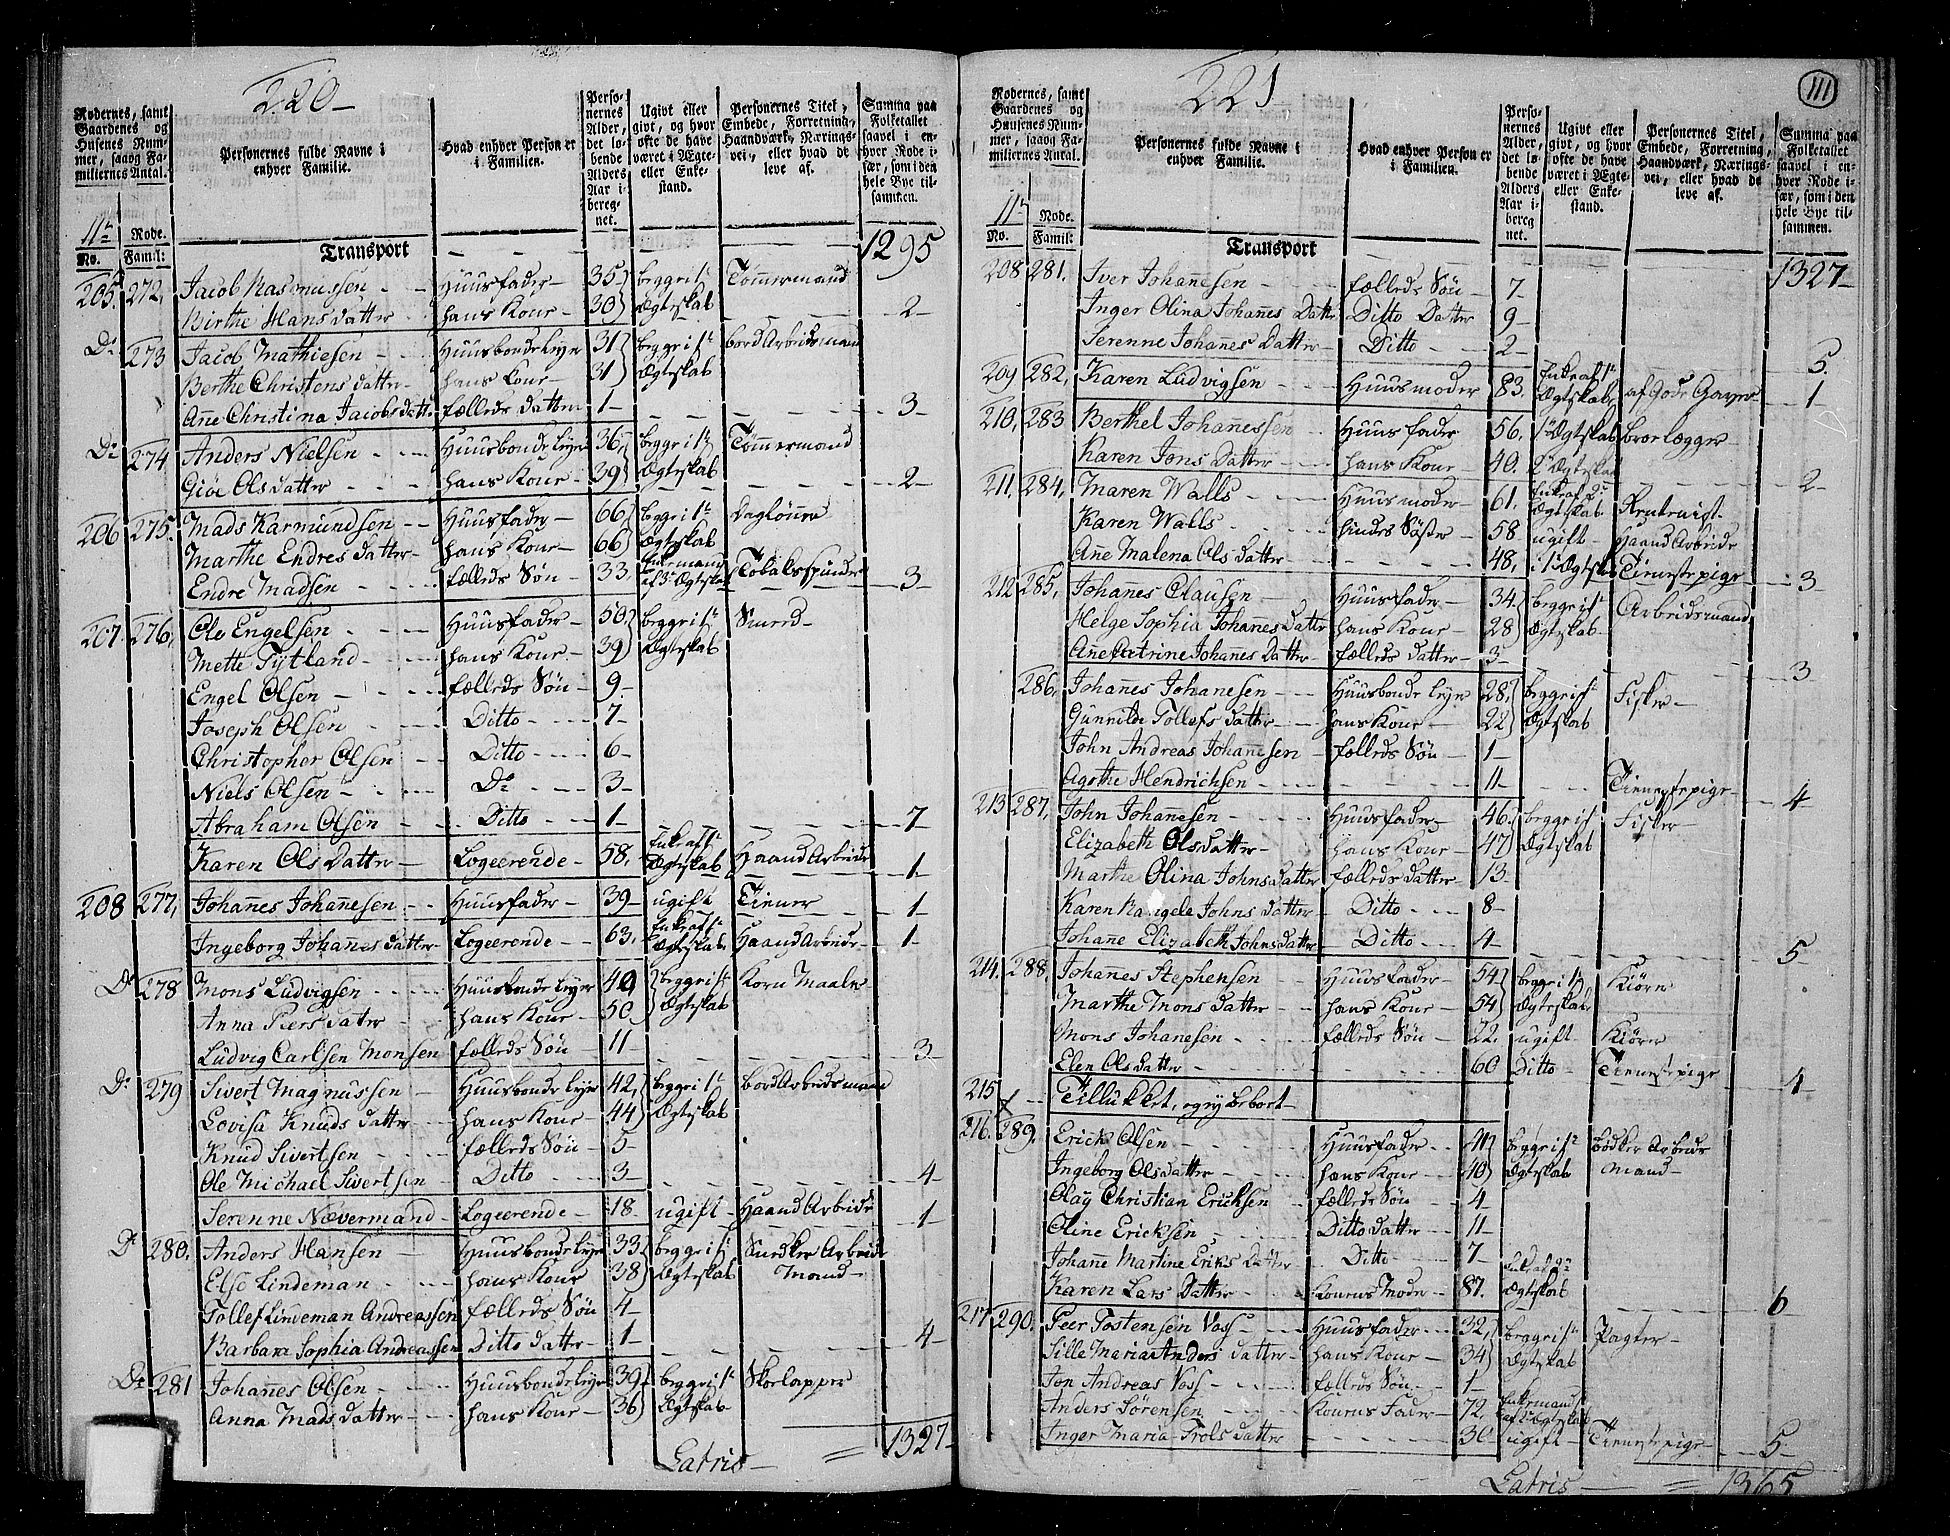 220
Rodernes, samt Gaardenes og Husenes Nummer, saavg Familiernes Antal.
Personernes fulde Navne i enhver Familie.
Hvad enhver Person er i Familien.
Personernes Alder, det løbende Alders Aar iberegnet.
Ugivt eller givt, og hvor ofte de have været i Ægte- eller Enkestand.
Personernes Titel, Embede, Forretning, Haandværk, Næringsvei, eller hvad de leve af.
Summa paa Folketallet saavel i enhver Rode især, som i den hele Bye tilsammen.
11te Rode.
No. Famil:
Transport 1295
205. 272. Jacob Rasmussen Huusfader 35 begge i 1te Ægteskab Tømmermand
Birthe Hans datter hans Kone 30 2
Do 273 Jacob Mathiesen Huusbonde leyer 31 begge i 1te Ægteskab bord Arbeidsmand
Berthe Christens datter hans Kone 31
Anne Christina Jacobsdatter fælleds datter 1 3
Do 274 Anders Nielsen Huusbonde leyer 36 begge i 1te Ægteskab Tømmermand
Giøe Olsdatter hans Kone 39 2
206 275. Mads Karmundsen Huusfader 66 begge i 1te Ægteskab Daglønner
Marthe Endres datter hans Kone 66
Endre Madsen fælleds Søn 33. Enkemand af 3die Ægteskab Tobakspinder 3
207. 276, Ole Engelsen Huusfader 50 begge i 1te Ægteskab Smed
Mette Tytland hans Kone 39
Engel Olsen fælleds Søn 9
Joseph Olsen Ditto 7
Christopher Olsen Ditto 6
Niels Olsen Do 3
Abraham Olsen Ditto 1 7
Karen Ols Datter Logeerende 58. Enke af 1te Ægteskab Haand Arbeide 1
208 277, Johannes Johannesen Huusfader 39 ugift Tiener 1
Ingeborg Johannes datter Logeerende 63. Enke af 1te Ægteskab Haand Arbeide 1
Do 278 Mons Ludvigsen Huusbonde leyer 40 begge i 1te Ægteskab Korn Maaler
Anna Peers dater hans Kone 50
Ludvig Carlsen Monsen fælleds Søn 11 3
Do 279 Sivert Magnussen Huusbonde leyer 42, begge i 1te Ægteskab bord Arbeidsmand
Lovisa Knuds datter hans Kone 44
Knud Sivertsen fælleds Søn 5
Ole Michael Sivertsen Ditto 3 4
Serenne Nævermand Logeerende 18 ugift Haand Arbeide 1
Do 280. Anders Hansen Huusbonde leyer 33 begge i 1te Ægteskab Snedker Arbeids Mand
Else Lindeman hans Kone 38
Tollef Lindeman Andreassen fælleds Søn 4
Barbara Sophia Andreassen Ditto datter 1 4
Do 281 Johannes Olsen Huusbonde leyer 39 begge i 1te Ægteskab Skoelapper
Anna Mads datter hans Kone 36
Latris = 1327
111
221
Rodernes, samt Gaardenes og Husenes Nummer, saavg Familiernes Antal.
Personernes fulde Navne i enhver Familie.
Hvad enhver Person er i Familien.
Personernes Alder, det løbende Alders Aar iberegnet.
Ugivt eller givt, og hvor ofte de have været i Ægte- eller Enkestand.
Personernes Titel, Embede, Forretning, Haandværk, Næringsvei, eller hvad de leve af.
Summa paa Folketallet saavel i enhver Rode især, som i den hele Bye tilsammen.
11te Rode.
No. Famil:
Transport 1327
208 281. Iver Johannesen fælleds Søn 7
Inger Olina Johannes Datter Ditto Datter 9
Serenne Johanes Datter Ditto 2 5
209 282, Karen Ludvigsen Huusmoder 83. Enke af 1te Ægteskab af Gode Gaver 1
210, 283 Berthel Johannessen Huusfader 56. 1te Ægtskab brolegger
Karen Jons Datter hans Kone 40. 2det Ægtskab 2
211, 284, Maren Walls Huusmoder 61. Enke af 2det Ægteskab
Karen Walls hindes Søster 58 ugift Haand Arbeide
Anne Malena Ols datter 48, i 1te Ægteskab Tienestepige 3
212 285, Johanes Clausen Huusfader 34 begge i 1te Ægteskab Arbeidsmand
Helge Sophia Johanes Datter hans Kone 28
Anne Catrine Johannes Datter fælleds datter 3 3
286, Johannes Johanesen Huusbonde leyer 28, begge i 1te Ægteskab Fisker
Gunnilde Tollefs datter hans Kone 22
John Andreas Johannesen fælleds Søn 1
Agethe Hendrichsen 11 Tienestepige 4
213 287, John Johannesen Huusfader 46. begge i 1te Ægteskab Fisker
Elizabeth Olsdatter hans Kone 47
Marthe Olina Johnsdatter fælleds datter 13
Karen Rangele Johns datter Ditto 8
Johane Elizabeth Johnsdatter Ditto 4 5
214. 288. Johannes Stephensen Huusfader 54 begge i 1te Ægteskab Kiører
Marthe Mons datter hans Kone 54
Mons Johanesen fælleds Søn 22. ugift Kiører
Elen Ols datter 60 Ditto Tienestepige 4
215 Tillukket, og ey beboet
216. 289. Erick Olsen Huusfader 41 begge i 1te Ægteskab bødker Arbeids Mand
Ingeborg Olsdatter hans Kone 40
Olay Christian Ericksen fælleds Søn 4
Oline Ericksen Ditto datter 11
Johanne Martine Ericks Datter Ditto 7
Karen Lars Datter Konens Moder 87. Enke af 2det Ægteskab 6
217 290. Peer Tostensen Voss Huusfader 32, begge i 1te Ægteskab Pagter
Sille Maria Anders datter hans Kone 34
Jon Andreas Voss fælleds Søn 1
Anders Sørensen Konens Fader 72, Enkemand af 1te Ægteskab
Inger Maria Trols datter 30 ugift Tienestepige 5
Latris = 1365